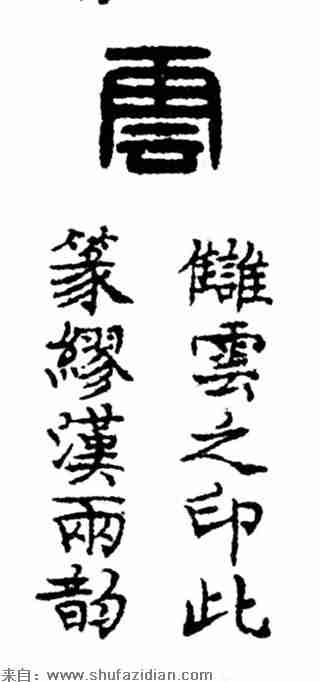 雲
讎雲之印此
篆繆漢兩韵
来自：www.shufazidian.com